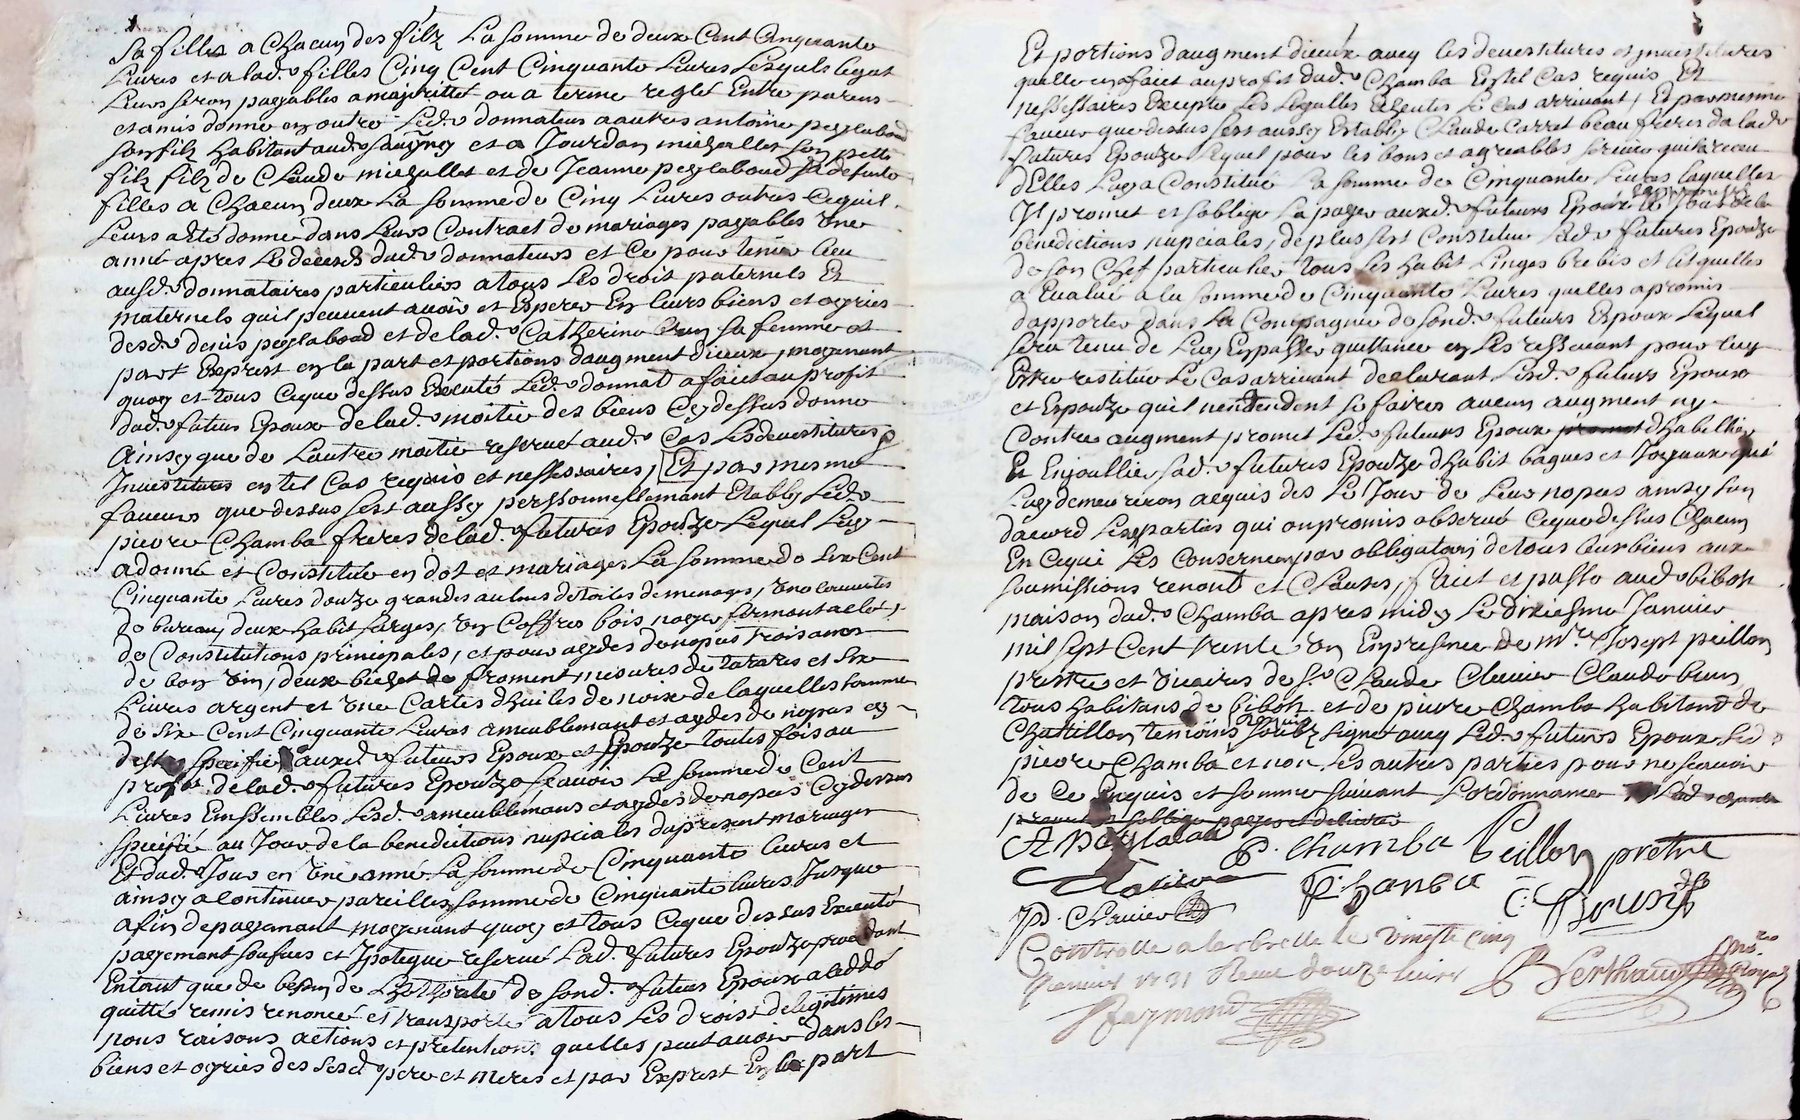 Sa filles a Chacun des filz La Somme de deux Cent Cinquante
Livres et a lad.e filles Cinq Cent Cinquante Livres Lesquls legat
Leurs seron payables a majorittet ou a terme reglé Entre parans
et amis donne en outre Led.e donnateur a autres antoine peyslaboud
son filz habitant aud. et a Jourdan miesallet son petit
filz filz de Claude miesallet et de Jeanne peyslaboud sa defunte
filles a Chacun deux La somme de Cinq Livres outres Cequil
Leurs a eté donné dans Leurs Contract de mariages payables Une
anné apres Le deceds dud.e donnateurs et Ce pour tenir lieu
ausd.e donnataires particuliers a tous Les droit paternels Et
maternels quil peuvent avoir et Esperer En leurs biens et
desd.e denis peyslaboud et de lad.e Catherine Brun sa femme et
par Exprest en la part et portions daugment dieux, moyenant
quoy et tous Ceque dessus Executé Led.e donnat a faict au profit
dud.e futeur Epoux de lad.e moitié des biens Cy dessus donné
Ainsy que de Lautre moitie reservé aud.e Cas Les devestitures &
Investitures en tel Cas requis et nessessaires, Et par mesme
faveurs que dessus sest aussy personnellemant Etably Led.e
pierre Chamba freres de lad.e futures Epouze Lequel Luy
a donné et Constitué en dot et mariages La somme de Six Cent
Cinquante Livres douze grandes aulnes de toiles de menages, Une couvertes
de bureau, deux habit sarges, Un Coffres bois noyer fermant a clef,
de Constitutions principales, et pour aydes de nopces trois asnees
de bon vin, deux bichet de froment mesures de tarares et Six
Livres argent et Une Cartes dhuiles de noix de laquelles somme
de Six Cent Cinquante Livres ameublemant et aydes de nopces cy
dessus specifié auxd.e futeurs Epoux et Epouze toutes fois au
profit de lad.e futures Epouze scavoir La somme de Cent
Livres Enssembles Lesd.e ameublemans et aydes de nopces Cy dessus
specifié au Jour de la benedictions nupciales du present mariages
Et dud.e Jour en Une anné La somme de Cinquante livres et
ainsy a continuer pareilles somme de Cinquante livres Jusque
a fin de payemant moyenant quoy et tous Ceque dessus Executé
payemant soufert et Ipoteque reservé Lad.e futures Epouze procedant
Entant que de besoin de Lhotorité de sond.e futeur Epoux a ceddé
quitté remis renoncé et transporté a tous Les droist de legitimes
noms raisons actions et pretentions quelles peut avoir dans les
biens et des sesd.e pere et meres et par Exprest En la part
Et portions daugment dieux avec les devestitures et investitures
quelle en faict au profit dud.e Chamba En tel Cas requis Et
nessessaires Excepté Les Le Cas arrivant, Et par mesme
faveur que dessus sest aussy Establij Claude Carret beau freres da lad.e
futures Epouze Lequel pour les bons et agreables service quil a receu
dElles Luy a Constitué La somme de Cinquante Livres laquelles
Il promet et soblige La payer auxd.e futeurs Epoux Le Jour de la
benedictions nupciales, de plus sest Constitué Lad.e futures Epouze
de son Chef particulier tous Les habit Linges brebis et lit quelles
a Evalué a La somme de Cinquante Livres quelles a promis
dapporter dans La Compagnie de sond.e futeurs Epoux Lequel
sera tenu de Luy En passer quittance en Les ressevant pour luy
Estre restitué Le Cas arrivant declarant Lesd.e futeurs Epoux
et Espouze quil nentendent se faires aucun augment ny
Contre augment promet Led.e futeurs Epoux promet dhabillier
Et Enjouallier sad.e futures Epouze dhabit bagues et Joyaux qui
Luy demeureron acquis des Le Jour de Leur nopces ainsy son
dacord Lesparties qui on promis observé Ceque dessus Chacun
En Cequi Les Conserneray par obligations de tous leur biens aux
soumissions renont et Clauses, faict et passé aud.e bibost
maison dud.e Chamba apres midy Le dixiesme Janvier
mil sept Cent trente Un En presence de m.re Joseph peillon
prestre et Vicaires de S.t Claude Clunier Claude brun
tous habitans de bibost et de pierre Chamba habitant de
Chatillon temoins requis soubz signet avec Led.e futeurs Epoux Led.e
pierre Chamba et non Les autres parties pour ne scavoir
de Ce Enquis et somme suivant Lordonnance Lad.e
promet et soblige payer et delivrer
A peyslaboud
P. Chamba Peillon prètre
P. Chanba C: Brun
P. Clunier
Controllé a larbrelle le vingte cinq
Janvier 1731 Receu douze livres
Berthaud no.re Royal
Raymond